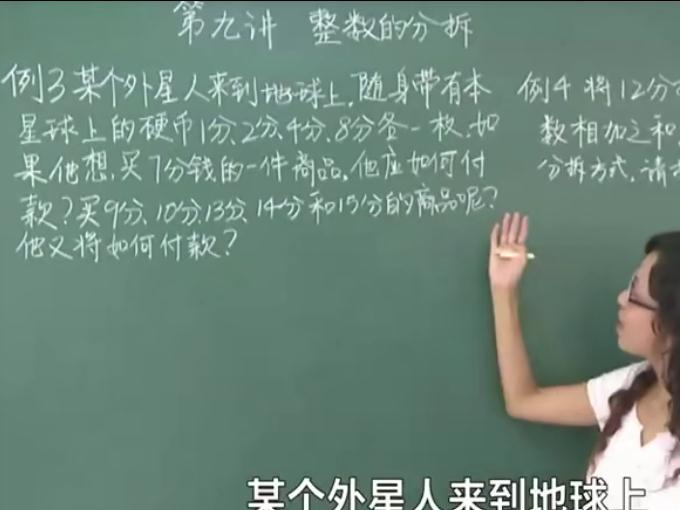 第九讲 整数的分拆
例3 某个外星人来到地球上,随身带有本
星球上的硬币1分、2分、4分、8分各一枚,如
果他想,买7分钱的一件商品,他应如何付
款?买9分、10分、13分、14分和15分的商品呢?
他又将如何付款?
例4 将12分
数相加之和,
分拆方式,请
某个外星人来到地球上